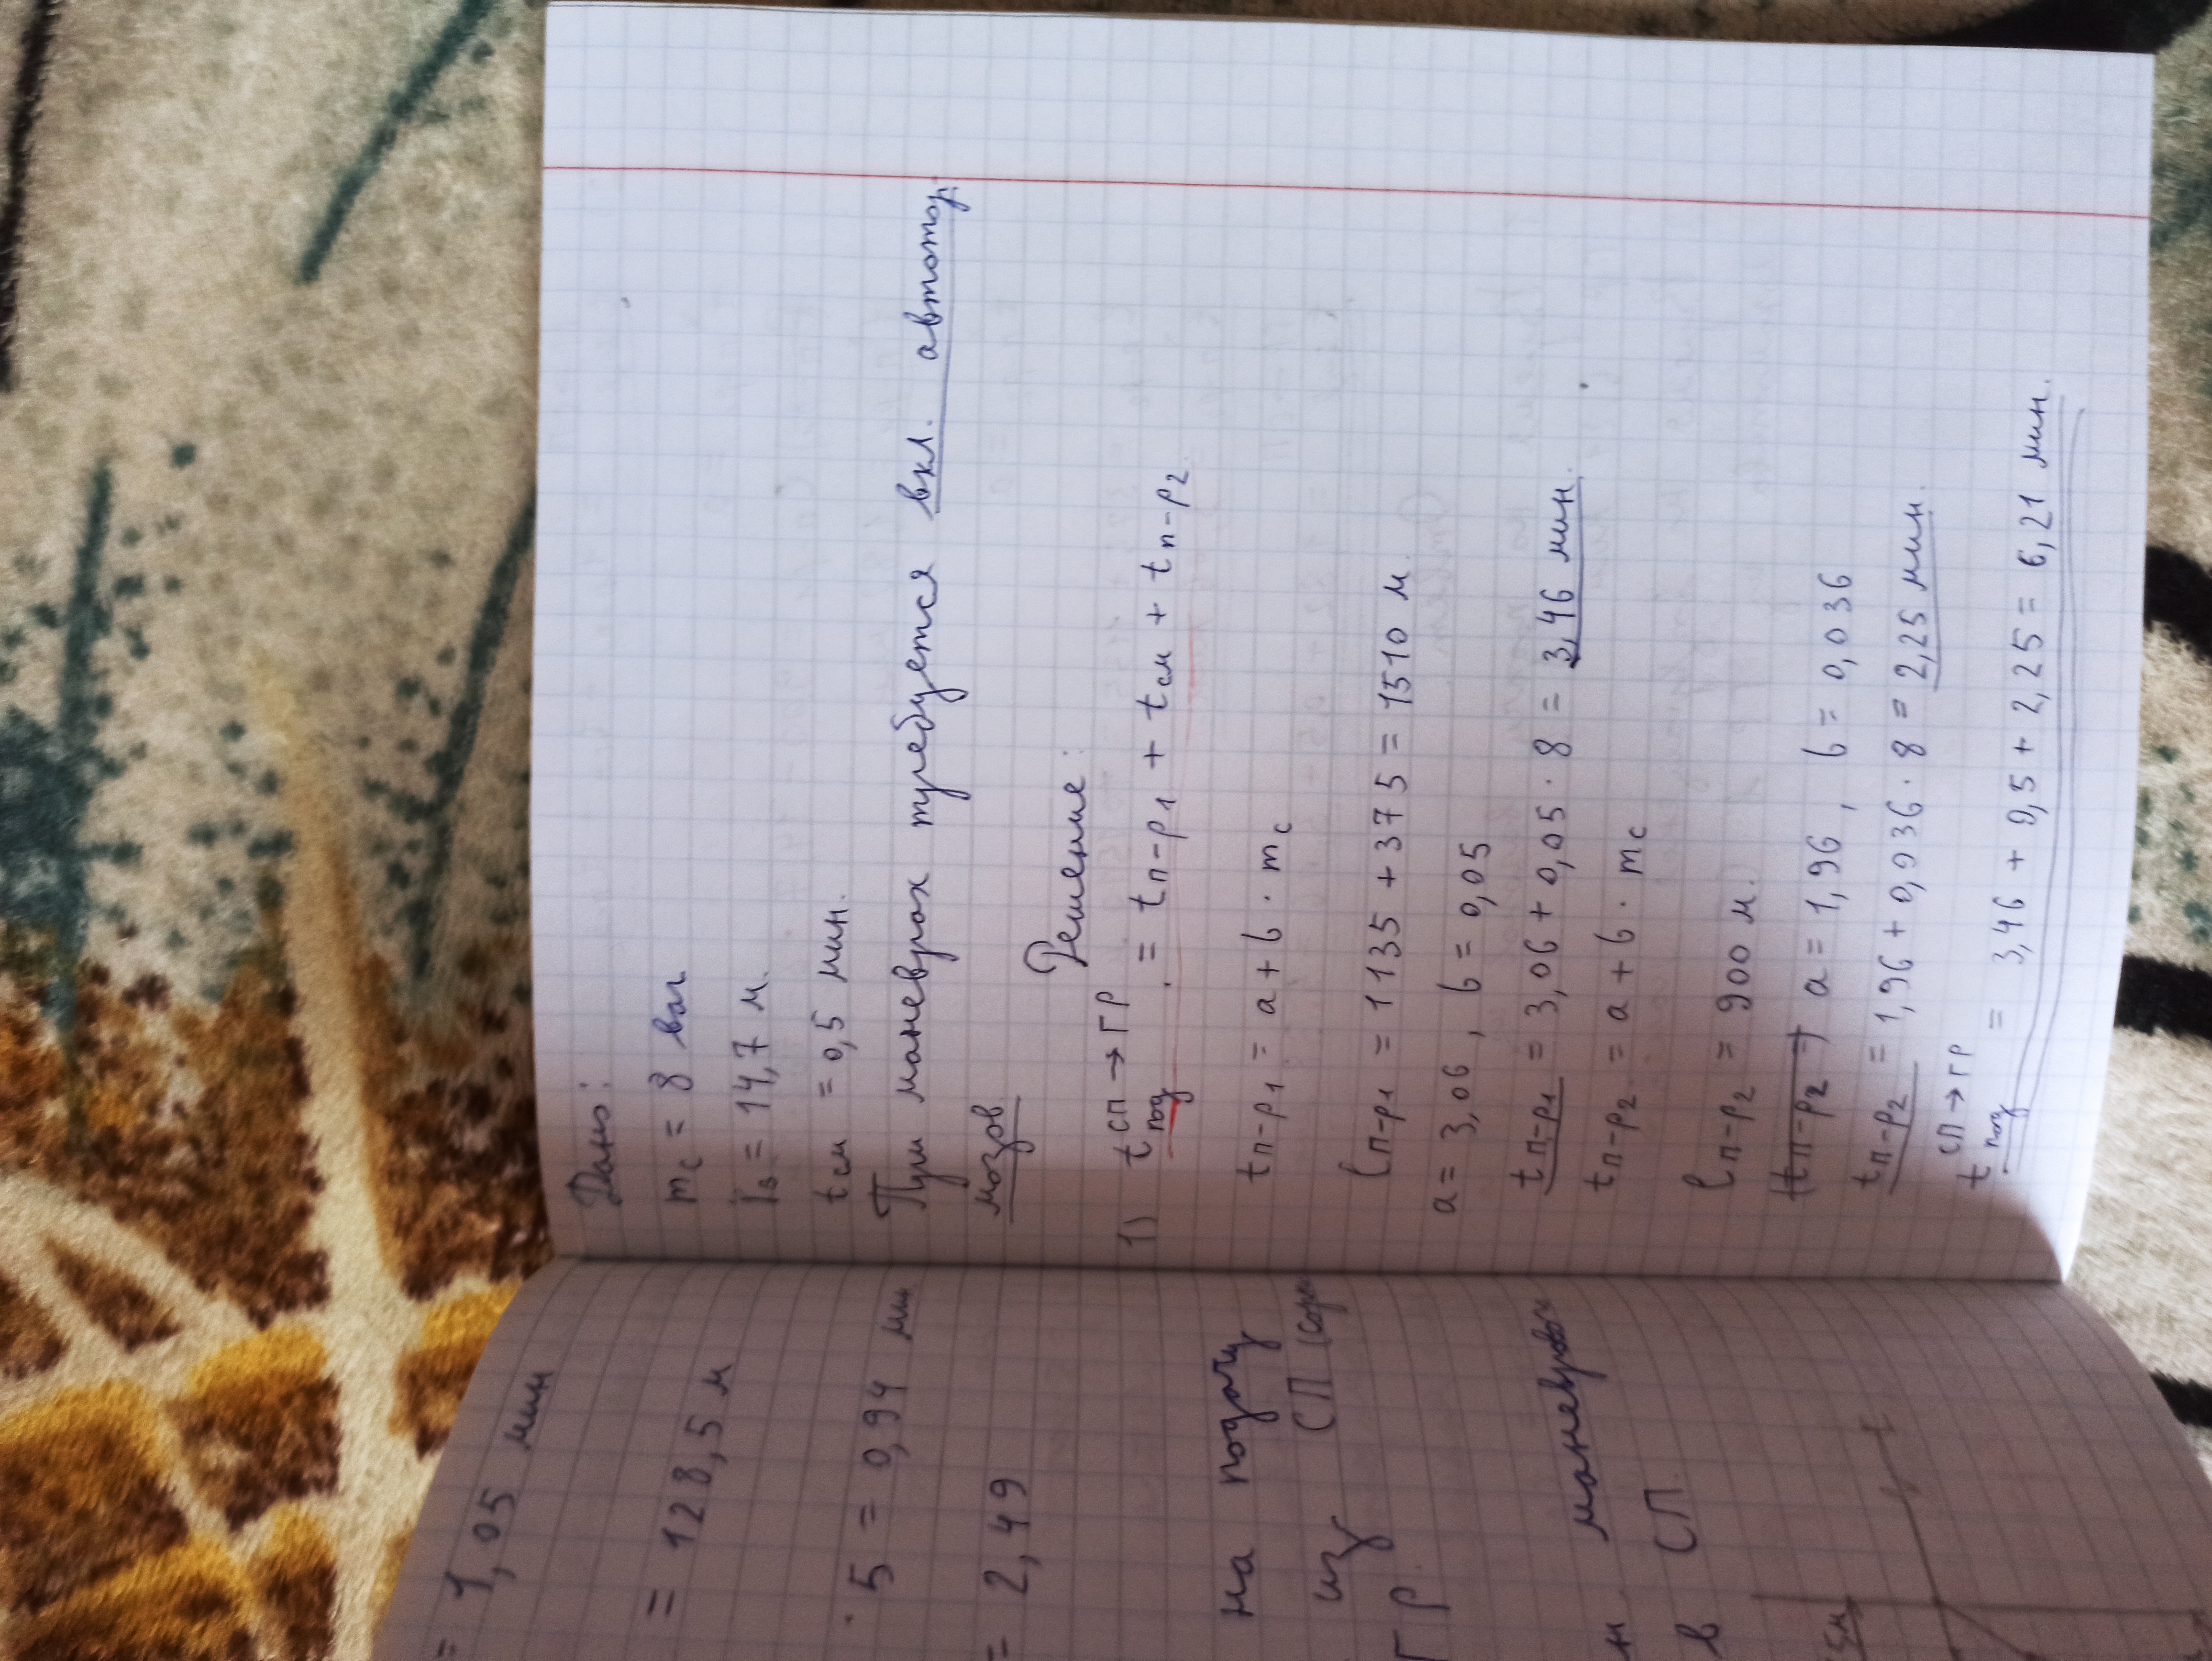 = 1,05 мин
= 128,5 м
· 5 = 0,94 мин
= 2,49
на подачу
из СП (сор
ГР.
н. маневров
в СП.
Дано:
mc = 8 ваг
lв = 14,7 м.
tсм = 0,5 мин.
При маневрах требуется вкл. автотор
мозов
Решение:
1) tпод СП→ГР. = tп-р1 + tсм + tп-р2.
tп-р1 = a + b · mc
lп-р1 = 1135 + 375 = 1510 м.
a = 3,06 , b = 0,05
tп-р1 = 3,06 + 0,05 · 8 = 3,46 мин.
tп-р2 = a + b · mc
lп-р2 = 900 м.
(tп-р2 =) a = 1,96 , b = 0,036
tп-р2 = 1,96 + 0,036 · 8 = 2,25 мин.
tпод СП→ГР = 3,46 + 0,5 + 2,25 = 6,21 мин.